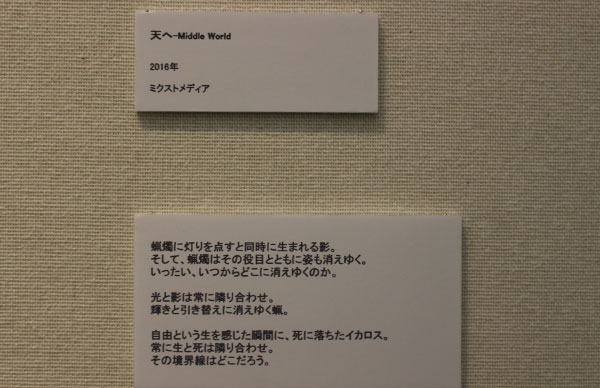 天へ-Middle World
2016年
ミクストメディア
蝋燭に灯りを点すと同時に生まれる影。
そして、蝋燭はその役目とともに姿も消えゆく。
いったい、いつからどこに消えゆくのか。
光と影は常に隣り合わせ。
輝きと引き替えに消えゆく蝋。
自由という生を感じた瞬間に、死に落ちたイカロス。
常に生と死は隣り合わせ。
その境界線はどこだろう。